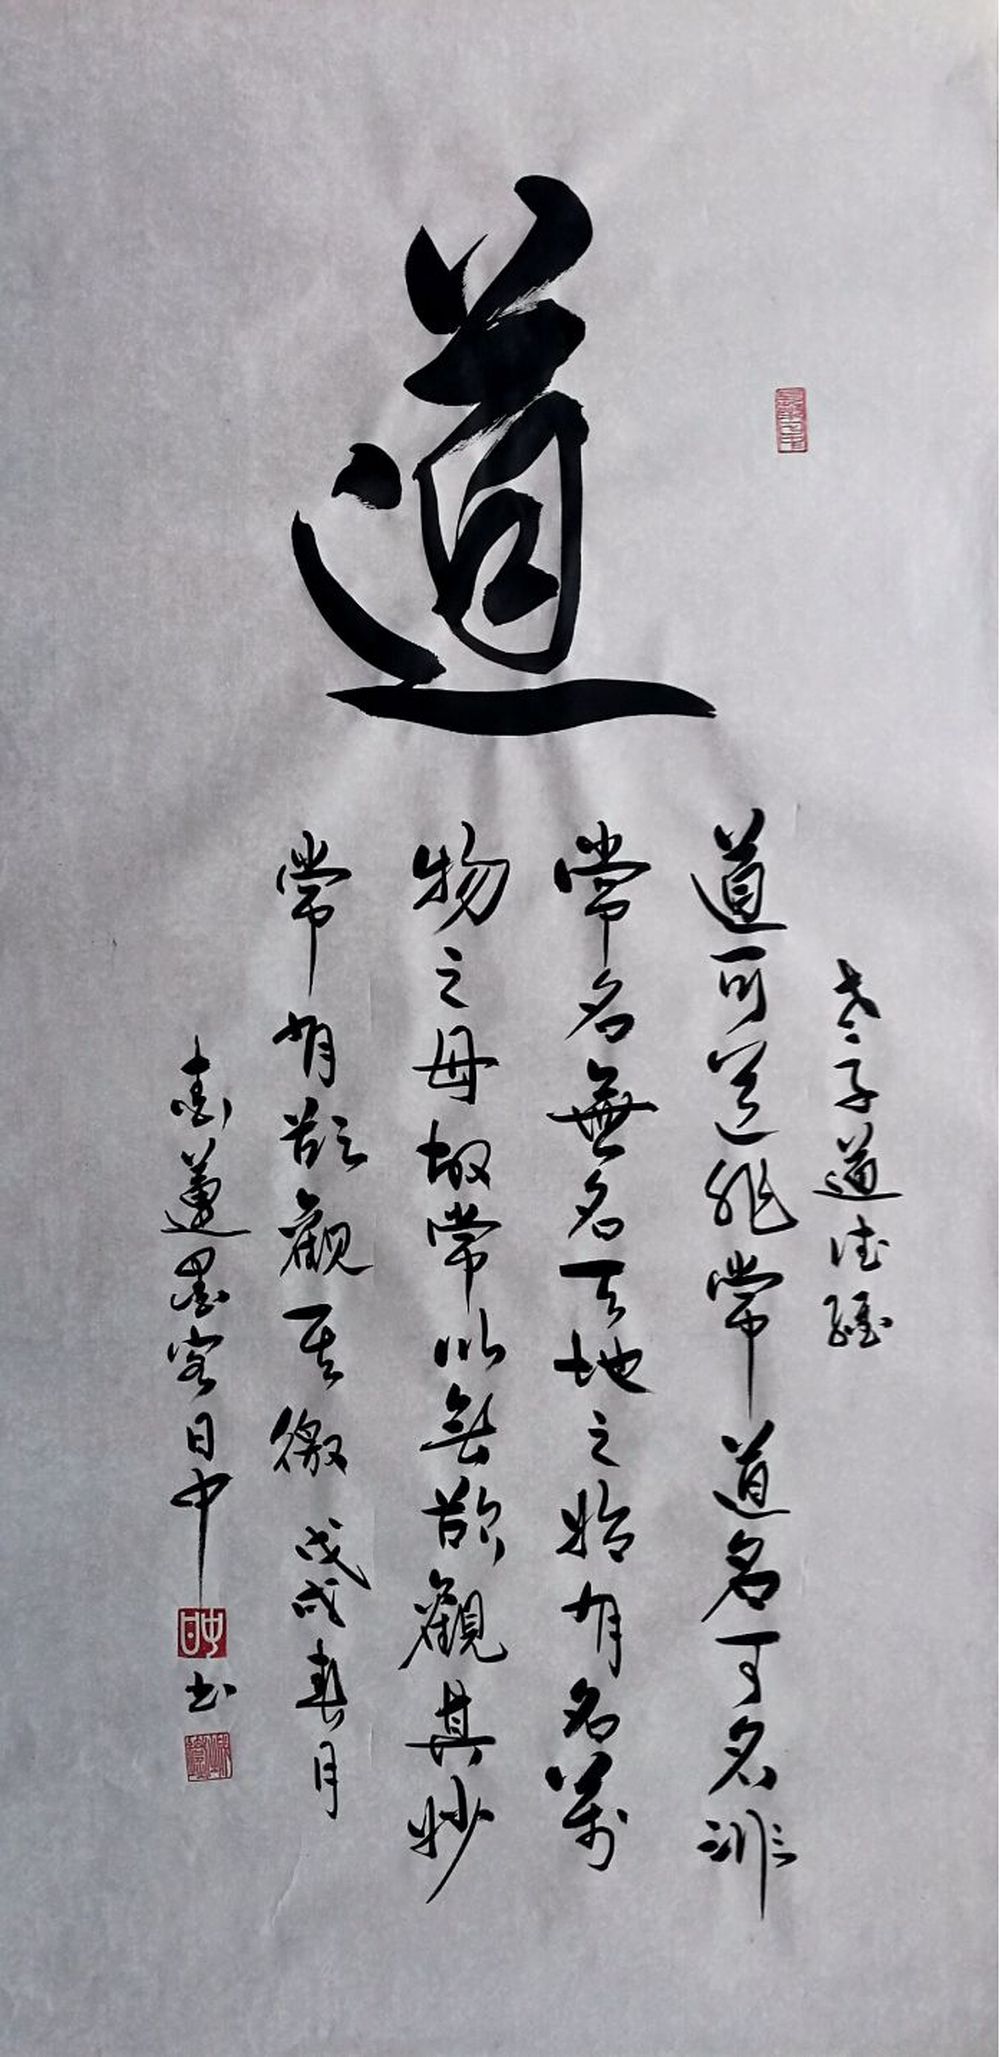 道
老子道德經
道可道非常道名可名非
常名無名天地之始有名萬
物之母故常以無欲觀其妙
常有欲觀其徼 戊戌春月
蓮墨客日中 书